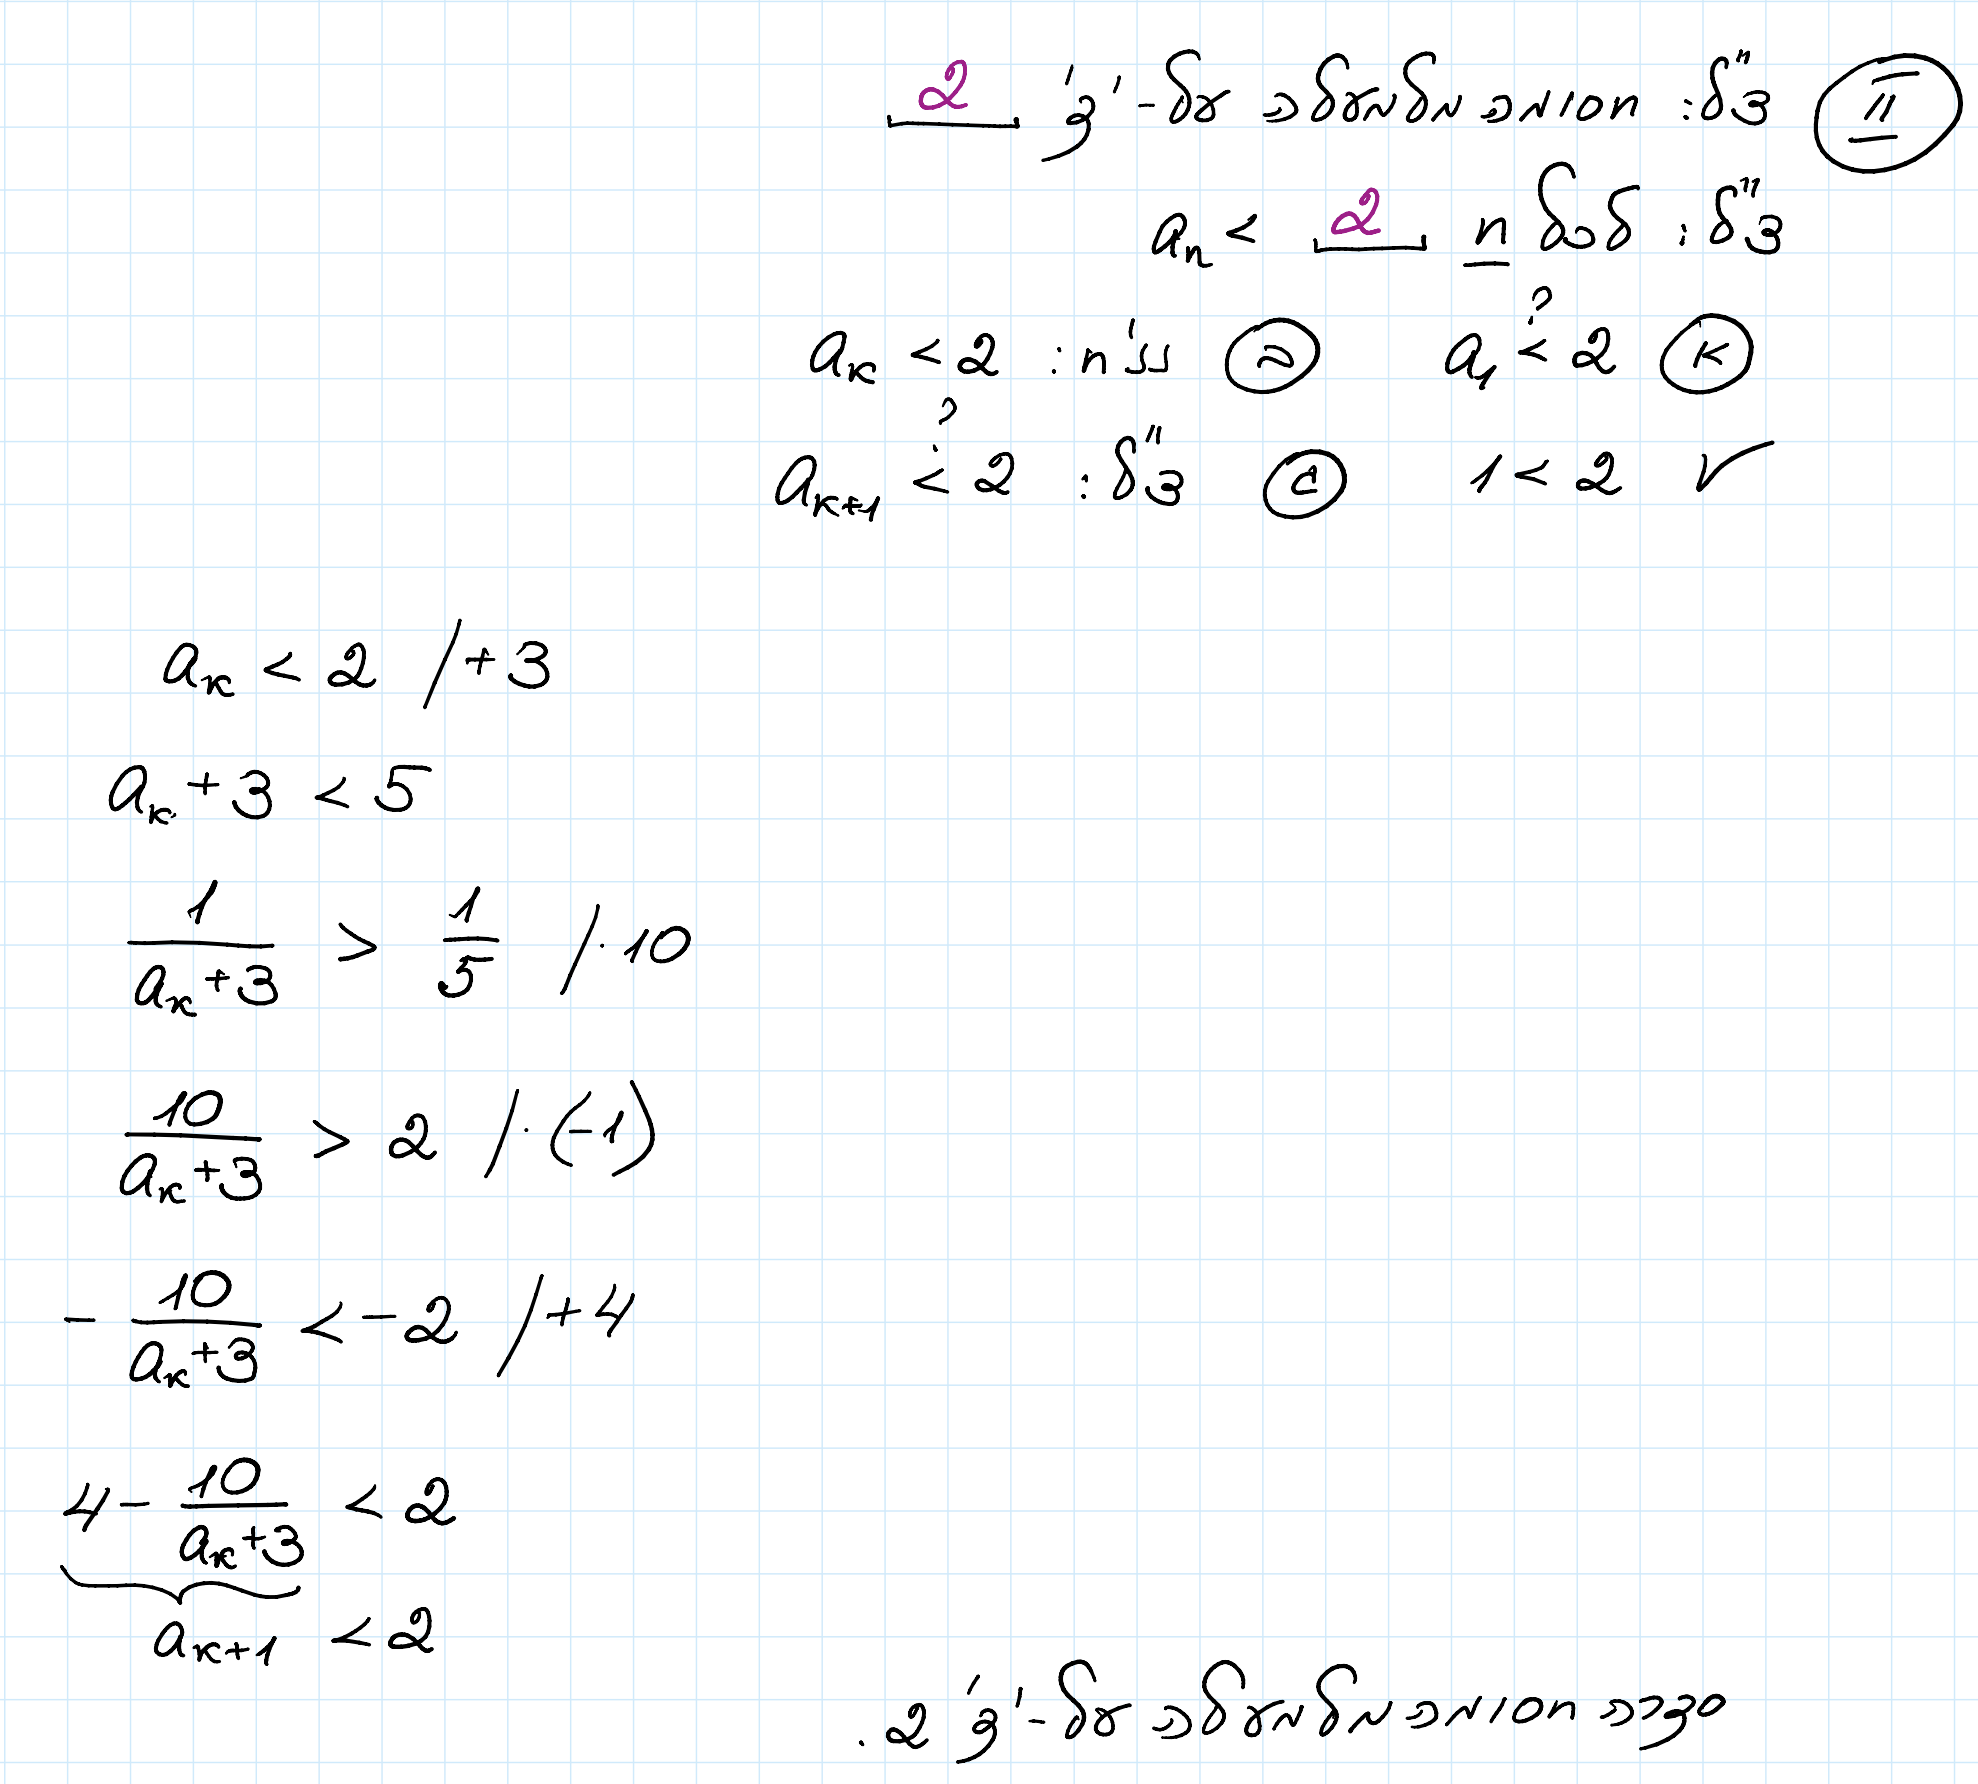 II צ"ל: חסומה מלמעלה על-ידי 2
צ"ל: לכל n a_n < 2
א a_1 <? 2 ב נניח: a_k < 2
1 < 2 ✓ ג צ"ל: a_{k+1} <? 2
a_k < 2 /+3
a_k + 3 < 5
1/(a_k+3) > 1/5 /·10
10/(a_k+3) > 2 /·(-1)
- 10/(a_k+3) < -2 /+4
4 - 10/(a_k+3) < 2
a_{k+1} < 2
סדרה חסומה מלמעלה על-ידי 2.